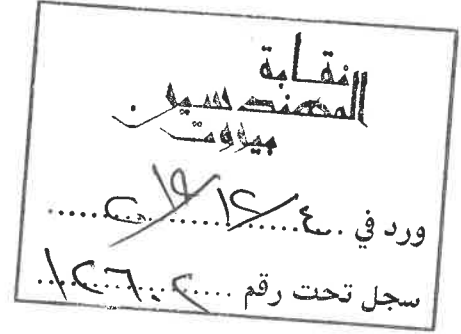 نقابة
المهندسين
بيروت
ورد في ٤/١٢/٢٠١٩
سجل تحت رقم ١٢٦٠٢